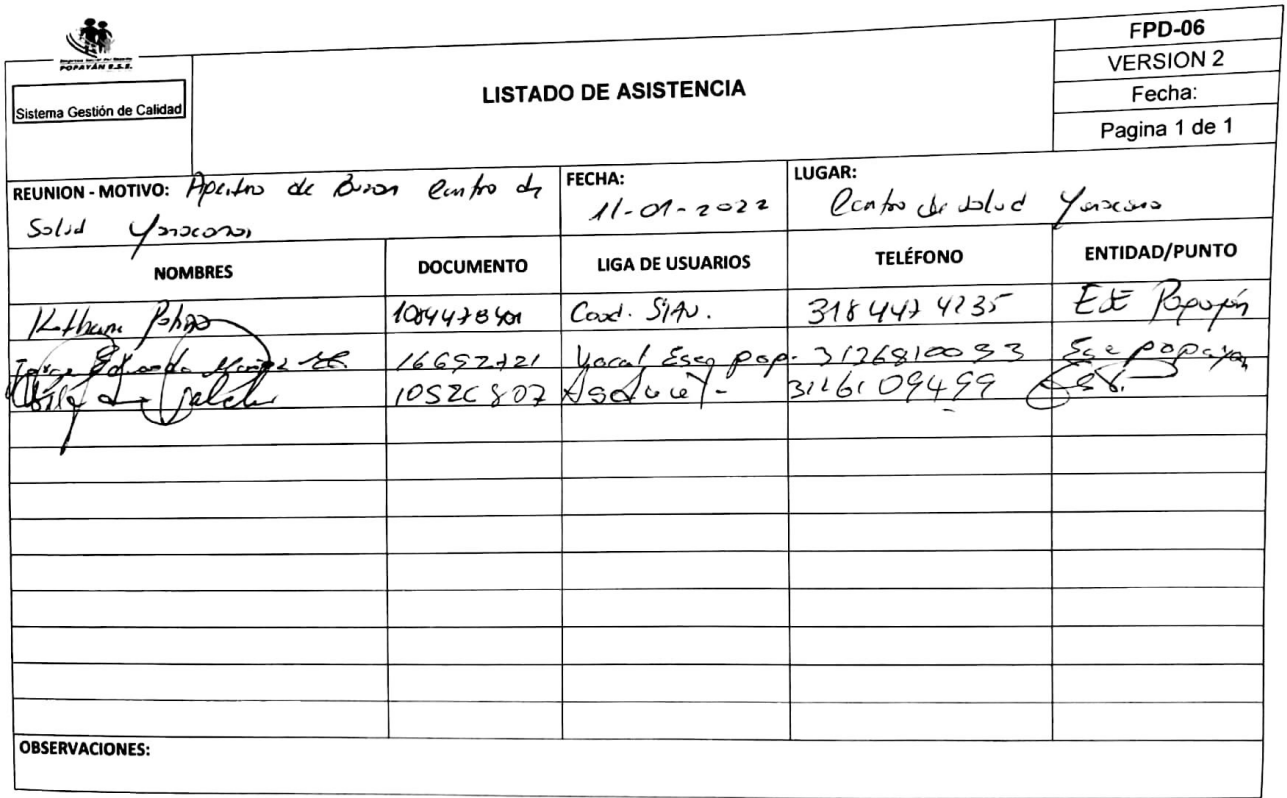 Empresa Social del Estado
POPAYÁN E.S.E.
Sistema Gestión de Calidad
LISTADO DE ASISTENCIA
FPD-06
VERSION 2
Fecha:
Pagina 1 de 1
REUNION - MOTIVO: de Buzon Centro de
Salud Yanaconas
FECHA:
11-01-2022
LUGAR:
Centro de salud Yanaconas
NOMBRES DOCUMENTO LIGA DE USUARIOS TELÉFONO ENTIDAD/PUNTO
Cood. SIAU. 318 447 4235 ESE Popayán
Eduardo 16652721 Vocal Ese pop. 3126810093 Ese popayan
3126109499
OBSERVACIONES: